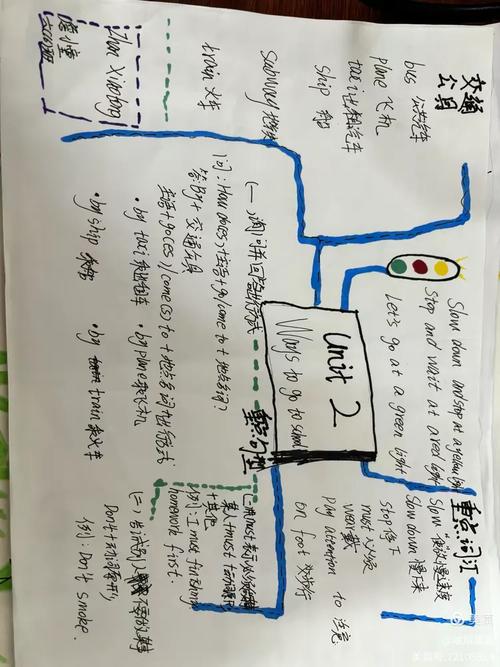 交通
工具
bus 公共汽车
plane 飞机
taxi 出租汽车
ship 轮船
subway 地铁
train 火车
Slow down and stop at a yellow light
Stop and wait at a red light
Let's go at a green light
Unit 2
Ways to go to school
重点词汇
Slow (使)放慢速度
Slow down 慢下来
Stop 停下
must 必须
wear 戴
Pay attention to 注意
on foot 步行
重点句型
(一)询问并回答出行方式
问: How do(es)+主语+go/come to+地点名词?
答: By+交通工具
主语+go(es)/come(s) to+地点名词+出行方式
·by taxi 乘出租车 ·by plane 乘飞机
·by ship 乘船 ·by train 乘火车
+其他
例: I must finish my
homework first.
Don't+动词原形
例: Don't smoke.